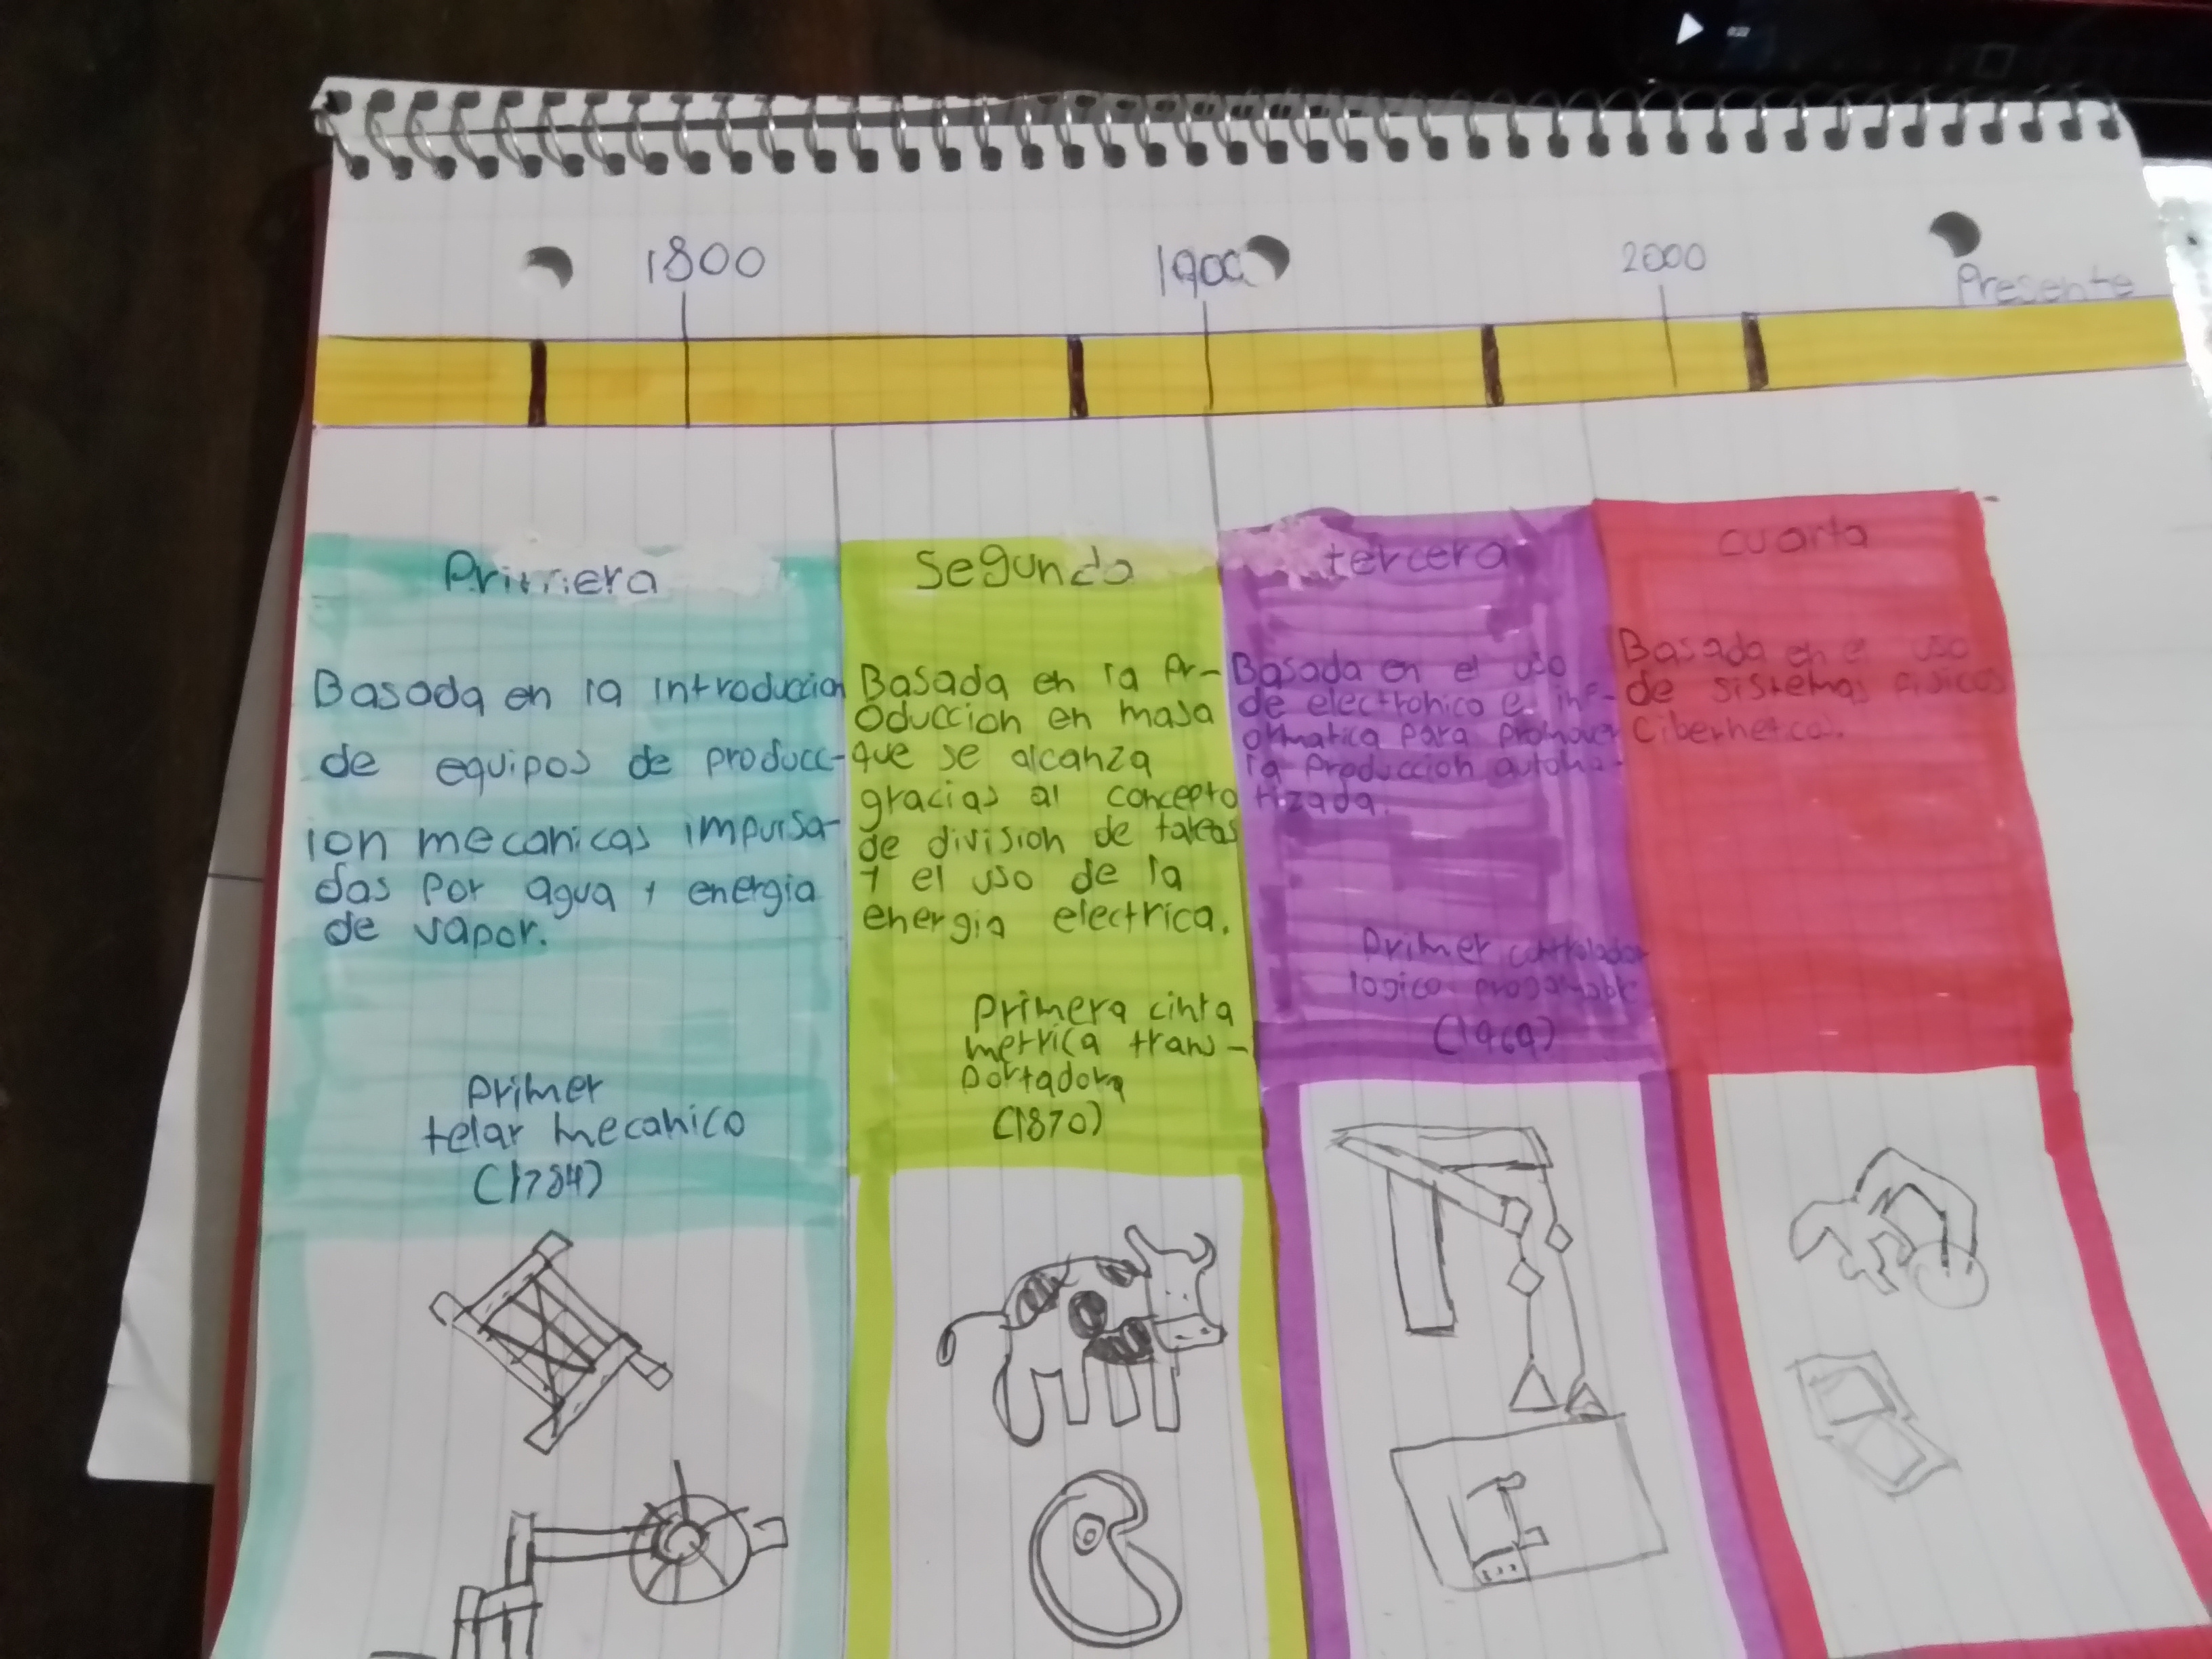 1800
1900
2000
Presente
Primera
Basada en la introduccion
de equipos de producc-
ion mecanicas impulsa-
das por agua y energia
de vapor.
Primer
telar mecanico
(1784)
Segunda
Basada en la Pr-
oduccion en masa
que se alcanza
gracias al concepto
de division de tareas
y el uso de la
energia electrica.
Primera cinta
metrica trans-
portadora
(1870)
tercera
Basada en el uso
de electronico e inf-
ormatica para promover
la Produccion automa-
tizada.
Primer controlador
logico
(1969)
cuarta
Basada en e uso
de sistemas fisicos